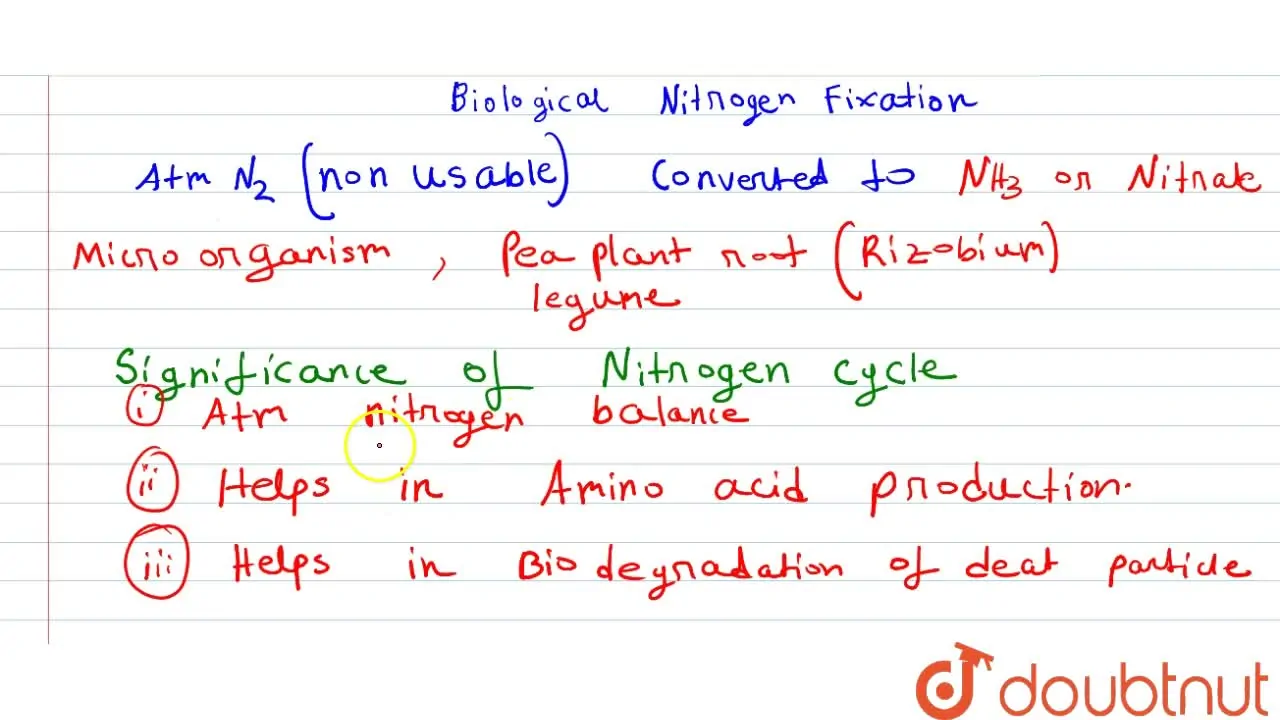 Biological Nitrogen Fixation
Atm N2 (non usable) Converted to NH3 or Nitrate
Micro organism, Pea plant root (Rizobium)
legume
Significance of Nitrogen cycle
i Atm nitrogen balance
ii Helps in Amino acid production.
iii Helps in Bio degradation of deat particle
doubtnut